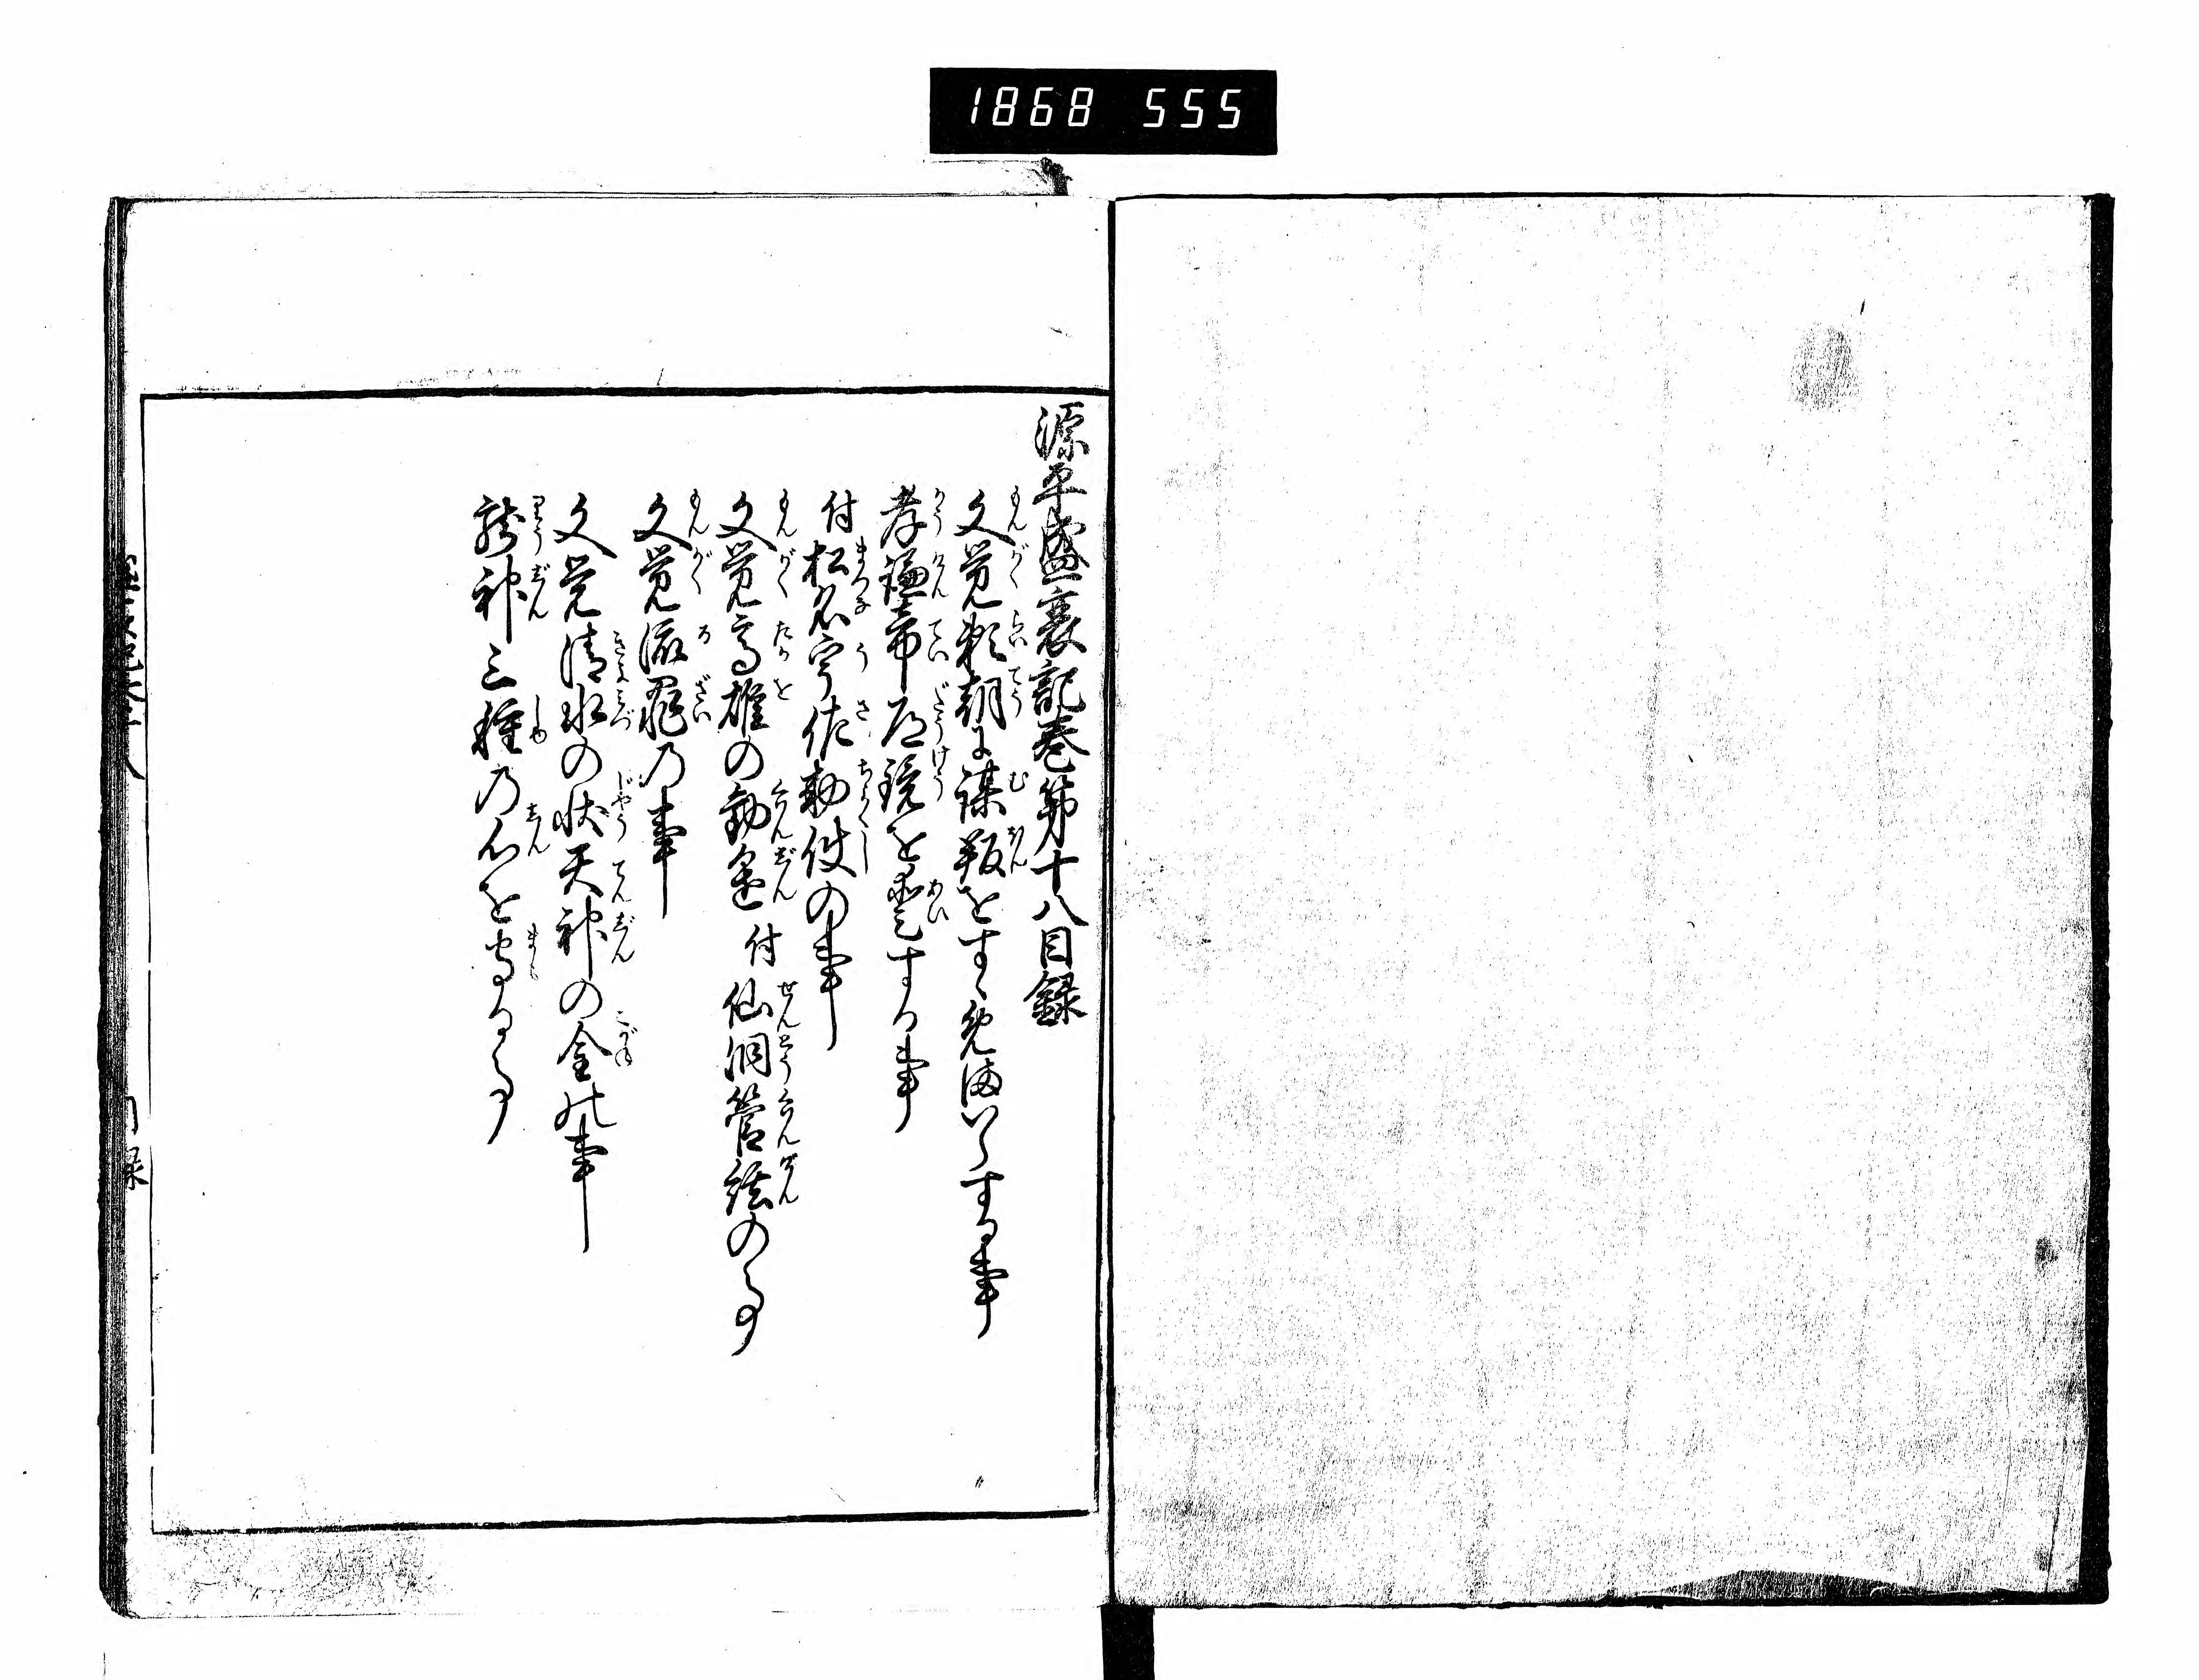 1868 555
源平盛衰記巻第十八目録
文覚頼朝に謀叛をすゝめまいらする事
孝謙帝道鏡を愛する事
付松名宇佐勅使の事
文覚高雄の勧進 付仙洞管絃の事
文覚流罪の事
文覚清水の状天神の金の事
龍神三種の心を守る事